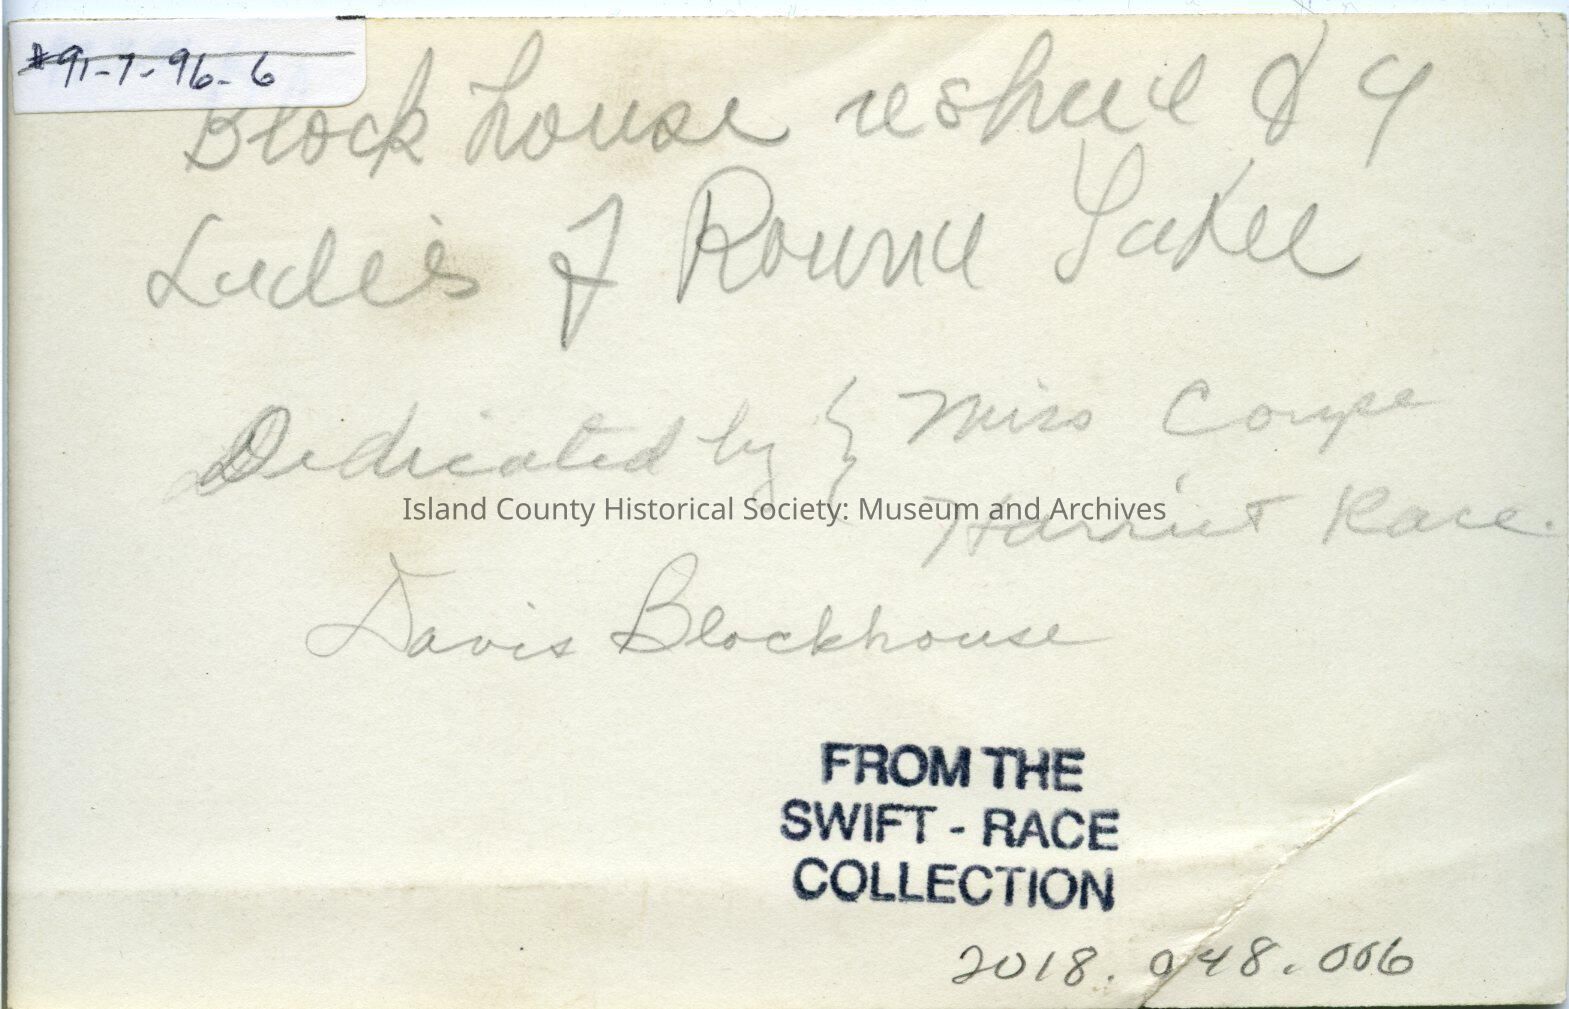 #91-7-96-6
Block house rebuilt by
Ladies of Round Table
Dedicated by { Miss Coupe
Harriet Race.
Island County Historical Society: Museum and Archives
Davis Blockhouse
FROM THE
SWIFT - RACE
COLLECTION
2018.048.006